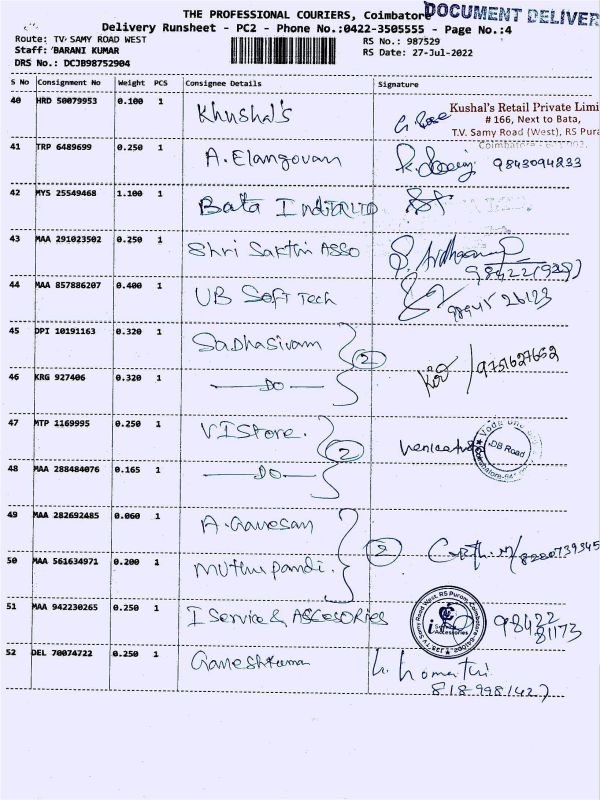 THE PROFESSIONAL COURIERS, Coimbatore
DOCUMENT DELIVER
Delivery Runsheet - PC2 - Phone No.:0422-3505555 - Page No.:4
Route: TV SAMY ROAD WEST
RS No.: 987529
Staff: BARANI KUMAR
RS Date: 27-Jul-2022
DRS No.: DCJB98752904
S No Consignment No Weight PCS Consignee Details Signature
40 HRD 50079953 0.100 1 Khushal's
Kushal's Retail Private Limi
# 166, Next to Bata,
T.V. Samy Road (West), RS Pura
Coimbatore - 641 002.
41 TRP 6489699 0.250 1 A. Elangovan 9843094233
42 MYS 25549468 1.100 1 Bata India LTD
43 MAA 291023502 0.250 1 Shri Sakthi ASSO
44 MAA 857886207 0.400 1 UB Soft Tech
45 DPI 10191163 0.320 1 Sadhasivam 2
9751627652
46 KRG 927406 0.320 1 DO
47 MTP 1169995 0.250 1 VI Store. 2
DB Road
48 MAA 288484076 0.165 1 DO
49 MAA 282692485 0.060 1 A. Ganesan 2
8220739345
50 MAA 561634971 0.200 1 Muthupandi.
51 MAA 942230265 0.250 1 I Service & ASCESORIES 98422 81173
52 DEL 70074722 0.250 1 Ganeshkumar